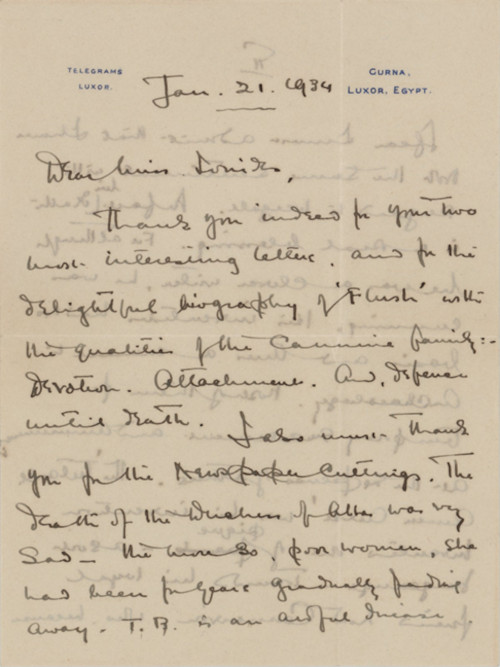 TELEGRAMS
LUXOR.
GURNA,
LUXOR, EGYPT.
Jan. 21. 1934
Dear Miss Ionides,
Thank you indeed for your two
most interesting letters, and for the
delightful biography of 'Flush' with
the qualities of the Cannine family:-
Devotion. Attachment. And, defence
until death. I also must thank
you for the Newspaper Cuttings. The
death of the Duchess of Alba was very
Sad - the more so, poor women, she
had been for years gradually fading
away - T.B. is an awful disease.